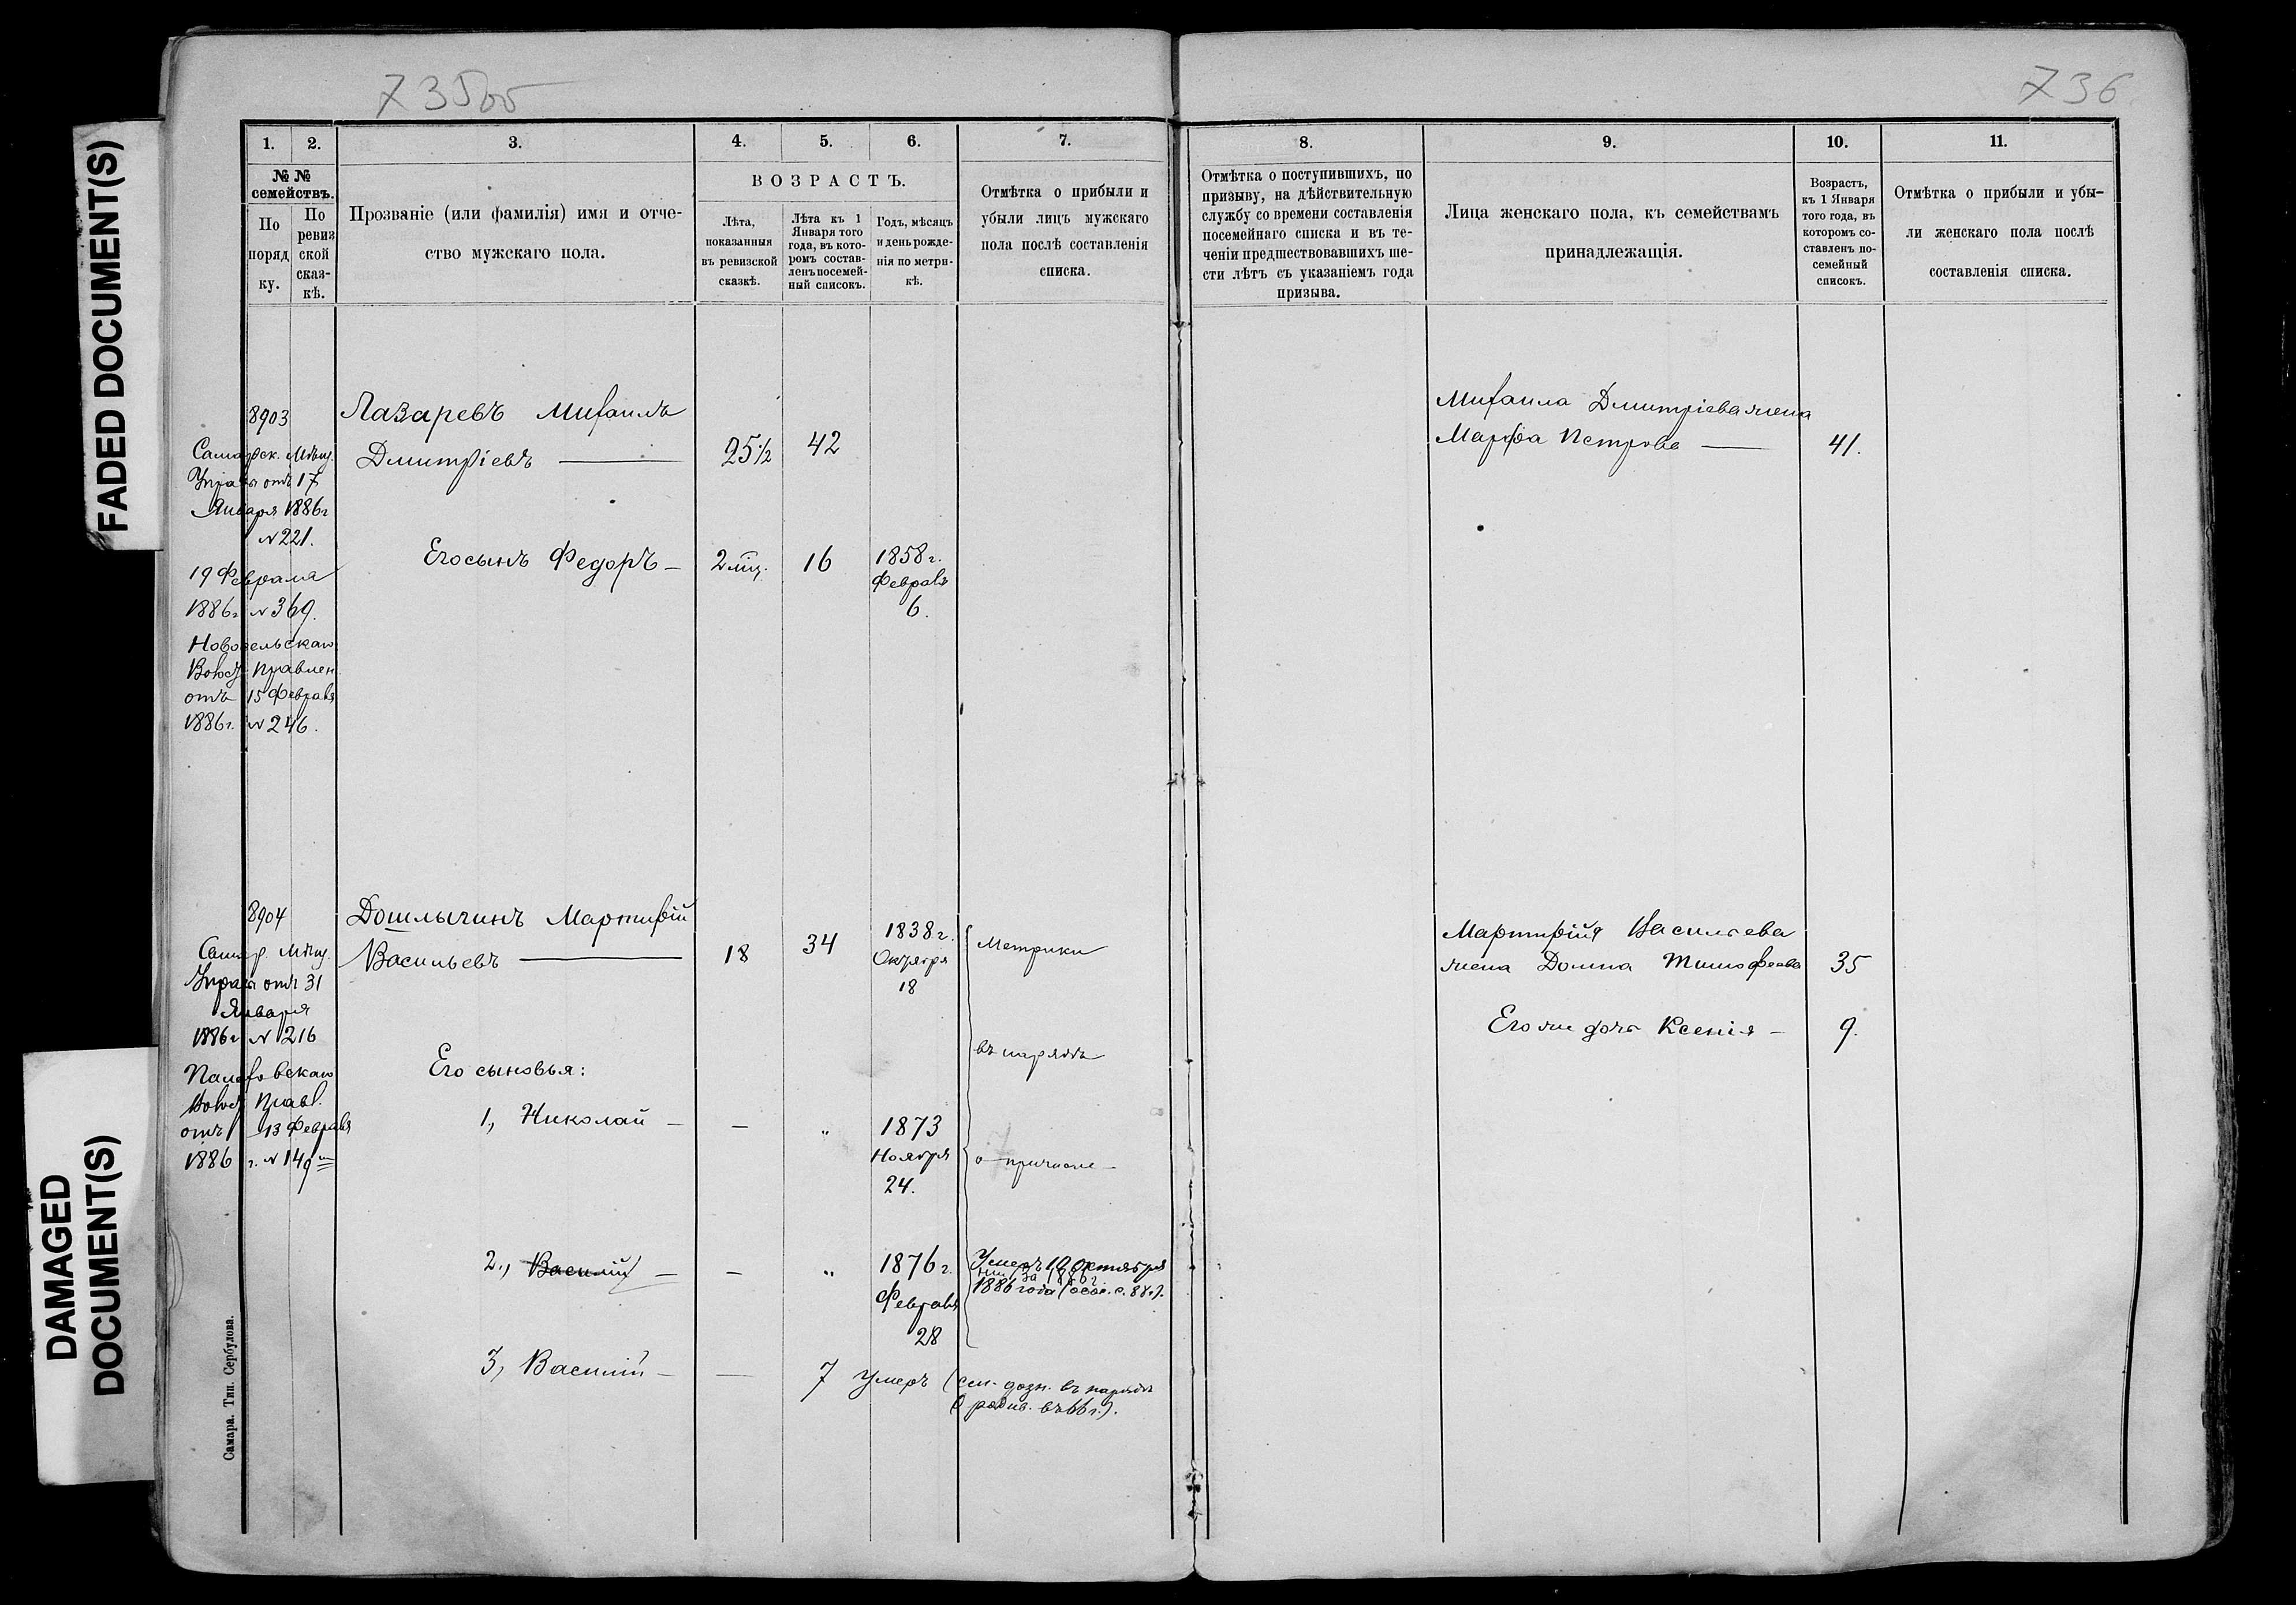 FADED DOCUMENT(S)
DAMAGED
DOCUMENT(S)
735об
736
1.
2.
3.
4.
5.
6.
7.
8.
9.
10.
11.
№ №
семействъ.
По
поряд
ку.
По
ревиз
ской
сказ-
кѣ.
Прозваніе (или фамилія) имя и отче-
ство мужскаго пола.
ВОЗРАСТЪ.
Лѣта,
показанныя
въ ревизской
сказкѣ.
Лѣта къ 1
Января того
года, въ кото-
ромъ состав-
ленъ посемей-
ный списокъ.
Годъ, мѣсяцъ
и день рожде-
нія по метри-
кѣ.
Отмѣтка о прибыли и
убыли лицъ мужскаго
пола послѣ составленія
списка.
Отмѣтка о поступившихъ, по
призыву, на дѣйствительную
службу со времени составленія
посемейнаго списка и въ те-
ченіи предшествовавшихъ ше-
сти лѣтъ съ указаніемъ года
призыва.
Лица женскаго пола, къ семействамъ
принадлежащія.
Возрастъ,
къ 1 Января
того года, въ
которомъ со-
ставленъ по-
семейный
списокъ.
Отмѣтка о прибыли и убы-
ли женскаго пола послѣ
составленія списка.
8903
Самарск. Мѣщ.
Управы отъ 17
Января 1886г
№ 221.
19 Февраля
1886г № 369.
Лазаревъ Михаилъ
Дмитріевъ —
25½
42
Михаила Дмитріева жена
Марфа Петрова —
41.
Его сынъ Федоръ —
2 мѣц.
16
1858г.
Февраля
6.
Правлен
отъ 15 Февраля
1886г. № 246.
8904
Самар. Мѣщ.
Управы отъ 31
Января
1886г № 216
Правл.
отъ 13 Февраля
1886 г. № 149
Дошлычинъ Мартирій
Васильевъ —
18
34
1838г.
Октября
18
Метрики
въ нарядѣ
Мартирія Васильева
жена Домна Тимофеева
35
Его же дочь Ксенія —
9.
Его сыновья:
1, Николай —
—
„
1873
Ноября
24.
о причисле—
2., Василій —
—
„
1876г.
Февраля
28
Умеръ 10 Октября
1886 года
3, Василій —
—
7
Умеръ
въ нарядѣ
Самара. Тип. Сербулова.